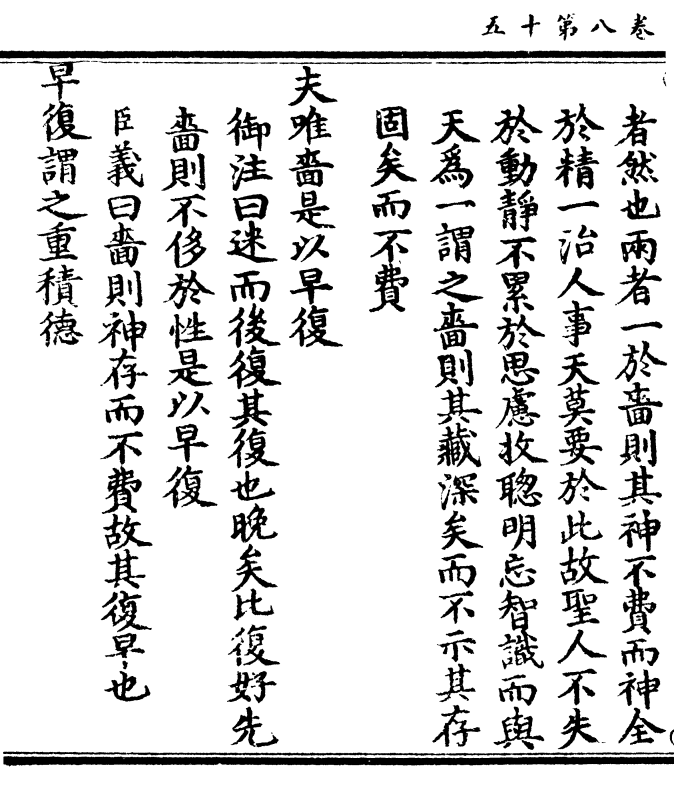 卷八第十五
者然也兩者一於嗇則其神不費而神全
於精一治人事天莫要於此故聖人不失
於動靜不累於思慮收聦明忘智識而與
天爲一謂之嗇則其藏深矣而不示其存
固矣而不費
夫唯嗇是以早復
御注曰迷而後復其復也晚矣比復好先
嗇則不侈於性是以早復
臣義曰嗇則神存而不費故其復早也
早復謂之重積德